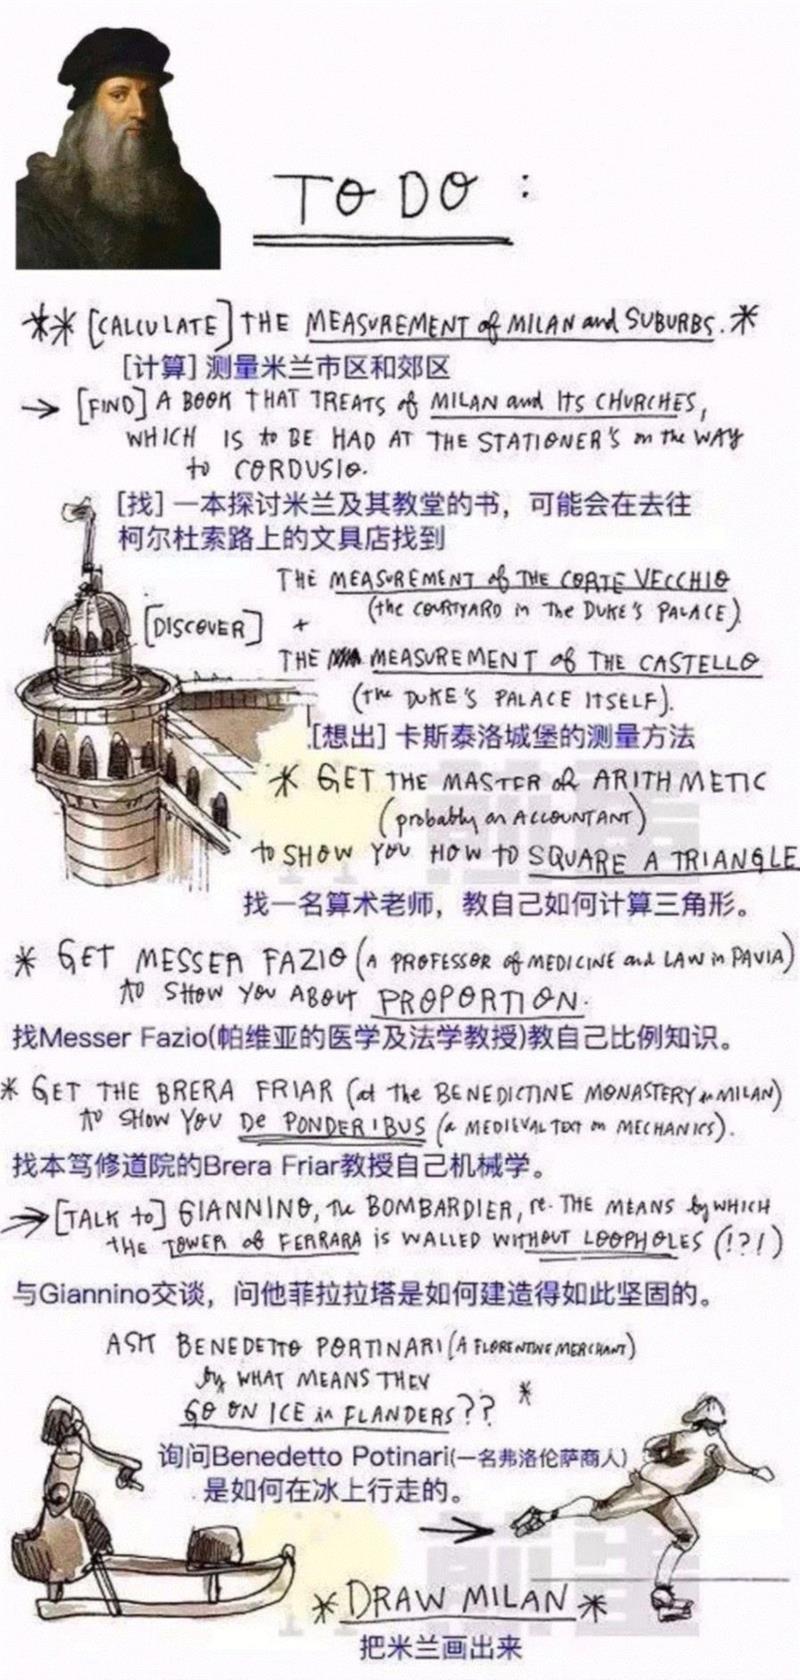 TO DO :
** [CALCULATE] THE MEASUREMENT of MILAN and SUBURBS. *
[计算] 测量米兰市区和郊区
→ [FIND] A BOOK THAT TREATS of MILAN and ITS CHURCHES,
WHICH IS to BE HAD AT THE STATIONER'S on the WAY
to CORDUSIO.
[找] 一本探讨米兰及其教堂的书，可能会在去往
柯尔杜索路上的文具店找到
THE MEASUREMENT of THE CORTE VECCHIO
(the COURTYARD in The DUKE'S PALACE).
[DISCOVER] +
THE MEASUREMENT of THE CASTELLO
(THE DUKE'S PALACE ITSELF).
[想出] 卡斯泰洛城堡的测量方法
* GET THE MASTER OF ARITHMETIC
(probably an ACCOUNTANT)
to SHOW YOU HOW TO SQUARE A TRIANGLE
找一名算术老师，教自己如何计算三角形。
* GET MESSER FAZIO (A PROFESSOR of MEDICINE and LAW in PAVIA)
TO SHOW YOU ABOUT PROPORTION.
找Messer Fazio(帕维亚的医学及法学教授)教自己比例知识。
* GET THE BRERA FRIAR (at the BENEDICTINE MONASTERY in MILAN)
TO SHOW YOU De PONDERIBUS (a MEDIEVAL TEXT on MECHANICS).
找本笃修道院的Brera Friar教授自己机械学。
→ [TALK to] GIANNINO, The BOMBARDIER, re. THE MEANS by WHICH
the TOWER of FERRARA is WALLED WITHOUT LOOPHOLES (!?!)
与Giannino交谈，问他菲拉拉塔是如何建造得如此坚固的。
ASK BENEDETTO PORTINARI (A FLORENTINE MERCHANT)
by WHAT MEANS THEY
GO ON ICE in FLANDERS?? *
询问Benedetto Potinari(一名弗洛伦萨商人)
是如何在冰上行走的。
* DRAW MILAN *
把米兰画出来